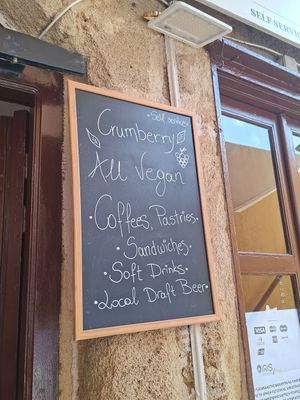 SELF SERVICE
• Self service
Crumberry
All Vegan
• Coffees, Pastries •
• Sandwiches •
• Soft Drinks •
• Local Draft Beer •
VISA
IRIS